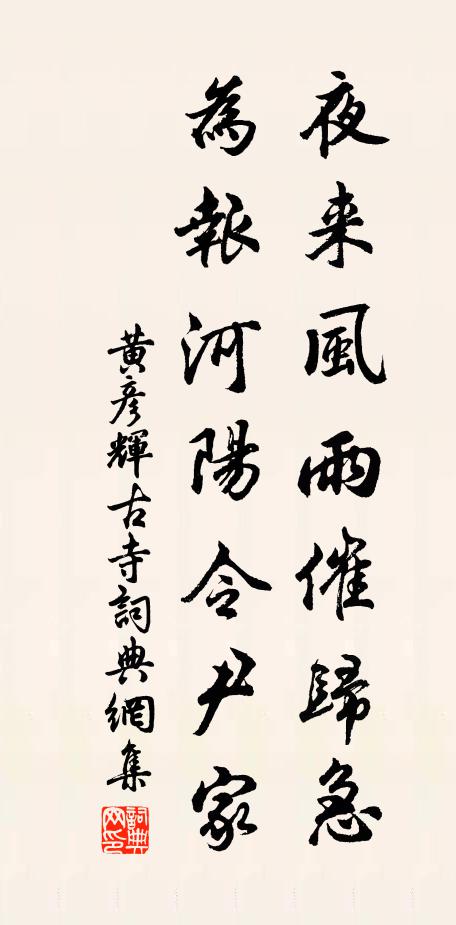 夜来風雨催歸急
為報河陽令尹家
黃彥輝古寺詞典網集
詞典网印